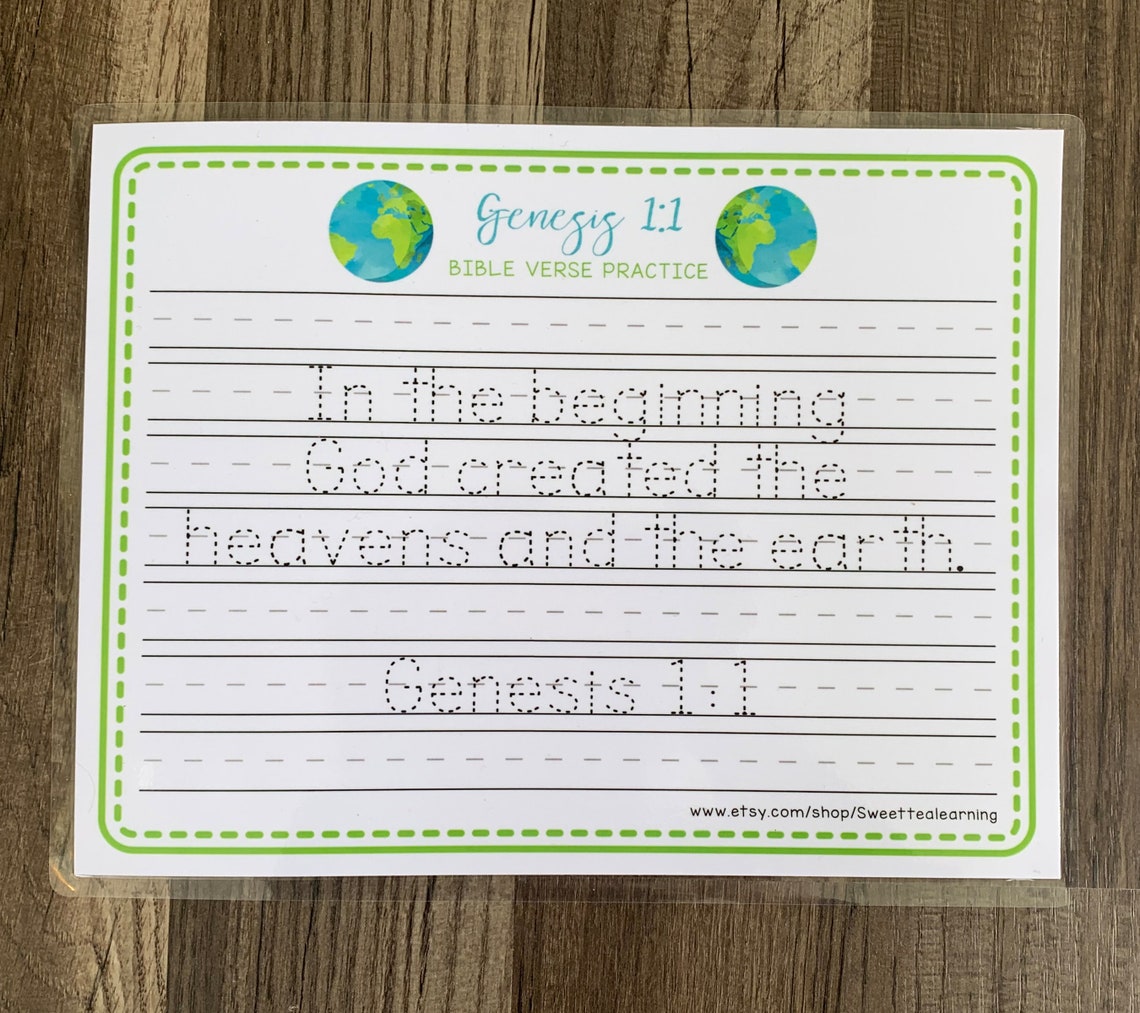 Genesis 1:1
BIBLE VERSE PRACTICE
In the beginning
God created the
heavens and the earth.
Genesis 1:1
www.etsy.com/shop/Sweettealearning